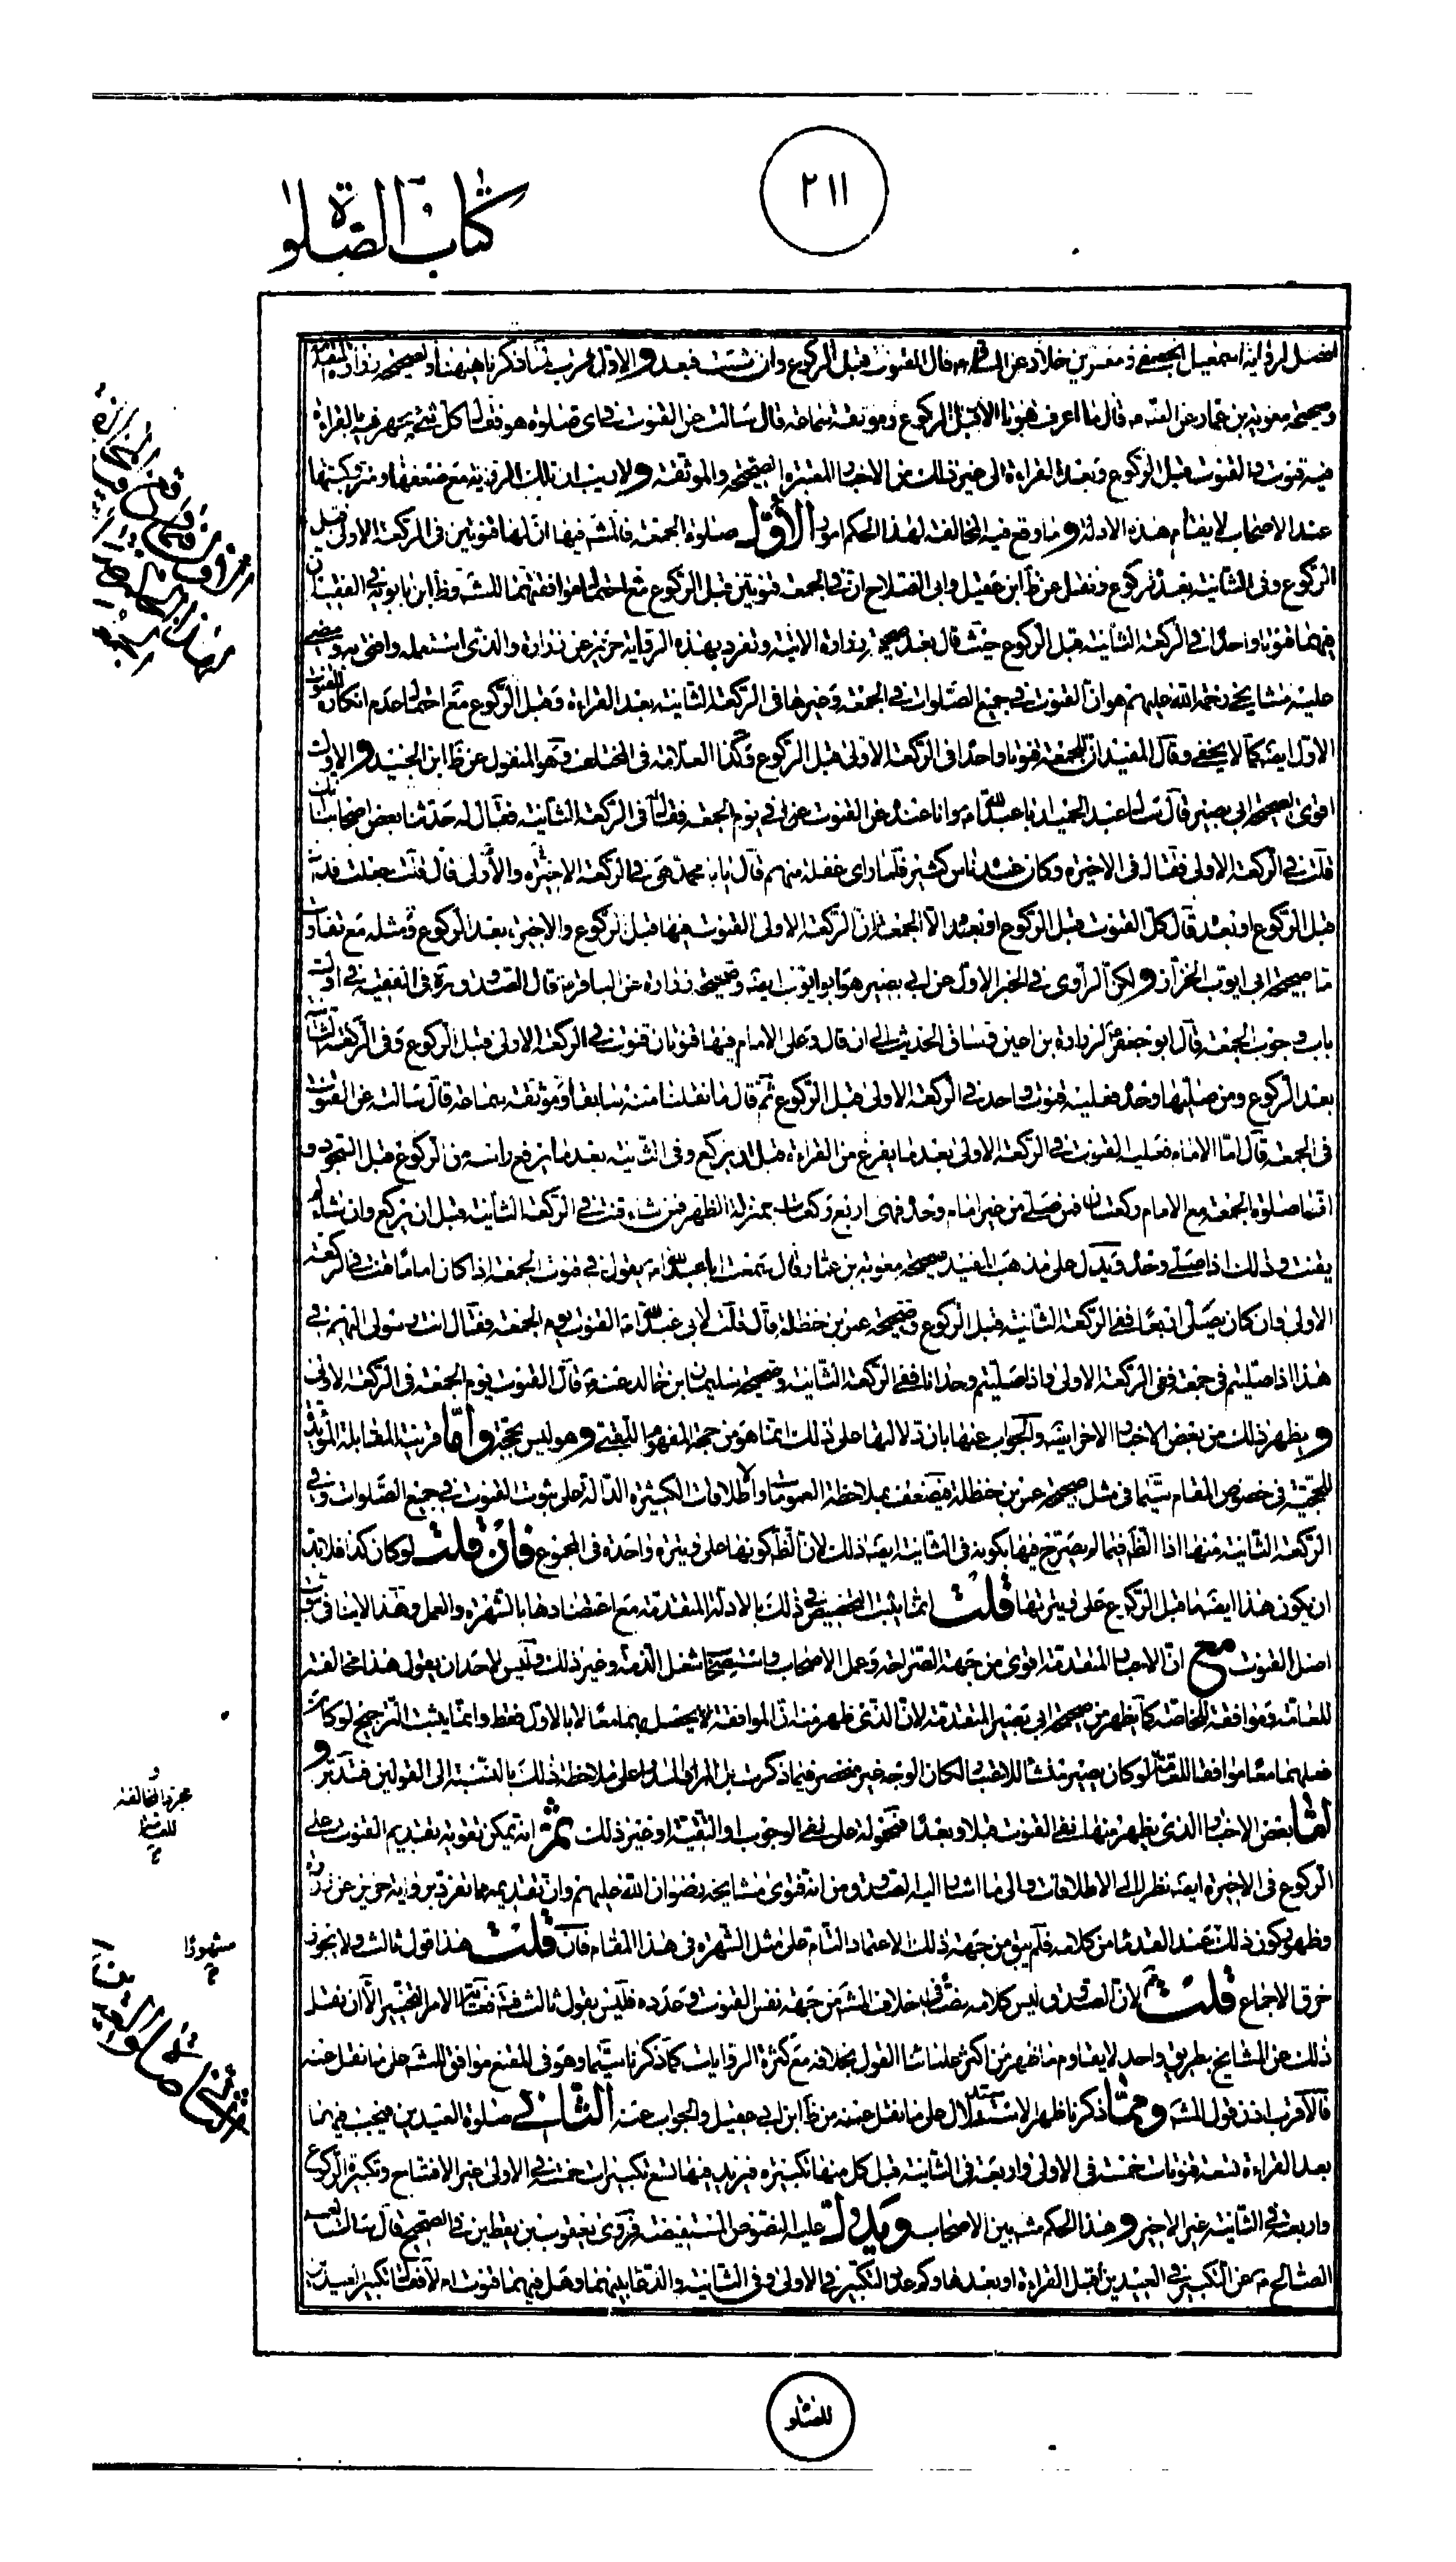 ٢١١
كتاب الصلوة
الفضل لرواية اسمعيل الجعفي ومعمر بن خلاد عن الباقر ع قال القنوت قبل الركوع وان شئت فبعد والاول اقرب لما ذكرنا ههنا ولصحيحة زرارة
وصحيحة معوية بن عمار عن الصه ع قال ما اعرف قنوتا الا قبل الركوع وموثقة سماعة قال سالت عن القنوت في اى صلوة هو فقال كل شئ يجهر فيه بالقراءة
فيه قنوت والقنوت قبل الركوع وبعد القراءة الى غير ذلك من الاخبار المعتبرة الصحيحة والموثقة ولا ريب ان تلك الرواية مع ضعفها ومتروكيتها
عند الاصحاب لا يقاوم هذه الادلة وما وقع فيه المخالفة لهذا الحكم امور الاول صلوة الجمعة فالمشه فيها ان لها قنوتين في الركعة الاولى قبل
الركوع وفى الثانية بعد الركوع ونقل عن ظ ابن عقيل وابى الصلاح ان في الجمعة قنوتين قبل الركوع مع احتمال موافقتهما للمشه وظ ابن بابويه في الفقيه ان
فيهما قنوتا واحدا في الركعة الثانية قبل الركوع حيث قال بعد صحيحة زرارة الاتية وتفرد بهذه الرواية حريز عن زرارة والذي استعمله وافتى به ومضى
عليه مشايخي رحمة الله عليهم هو ان القنوت في جميع الصلوات في الجمعة وغيرها في الركعة الثانية بعد القراءة وقبل الركوع مع احتمال عدم انكاره للقنوت
الاول ايضه كما لا يخفى وقال المفيد ان للجمعة قنوتا واحدا في الركعة الاولى قبل الركوع وكذا العلامة في المختلف وهو المنقول عن ظ ابن الجنيد والاول
اقوى لصحيحة ابى بصير قال سال عبد الحميد ابا عبد الله ع وانا عنده عن القنوت في يوم الجمعة فقال في الركعة الثانية فقال له حدثنا بعض اصحابنا انك
قلت في الركعة الاولى فقال في الاخيرة وكان عنده ناس كثير فلما راى غفلة منهم قال يا با محمد هي في الركعة الاخيرة والاولى قال قلت جعلت فداك
قبل الركوع او بعده قال كل القنوت قبل الركوع الا الجمعة فان الركعة الاولى القنوت فيها قبل الركوع والاخيرة بعد الركوع ومثله مع تفاوت
ما صحيحة ابى ايوب الخزاز ولكن الراوى في الخبر الاول عن ابى بصير هو ابو ايوب ايضه وصحيحة زرارة عن الباقر ع قال الصدوق ره في الفقيه في اول
باب وجوب الجمعة قال ابو جعفر ع لزرارة بن اعين وساق الحديث الى ان قال وعلى الامام فيها قنوتان قنوت في الركعة الاولى قبل الركوع وفى الركعة الثانية
بعد الركوع ومن صليها وحده فعليه قنوت واحد في الركعة الاولى قبل الركوع ثم قال ما نقلنا منه سابقا وموثقة سماعة قال سالته عن القنوت
في الجمعة قال اما الامام فعليه القنوت في الركعة الاولى بعد ما يفرغ من القراءة قبل ان يركع وفى الثانية بعد ما يرفع راسه من الركوع قبل السجود و
انما صلوة الجمعة مع الامام ركعتان فمن صلى من غير امام وحده فهى اربع ركعات بمنزلة الظهر فمن شاء قنت في الركعة الثانية قبل ان يركع وان شاء لم
يقنت وذلك اذا صلى وحده ويدل على مذهب المفيد صحيحة معوية بن عمار قال سمعت ابا عبد الله ع يقول في قنوت الجمعة اذا كان اماما قنت في الركعة
الاولى وان كان يصلى اربعا ففى الركعة الثانية قبل الركوع وصحيحة عمر بن حنظلة قال قلت لابى عبد الله ع القنوت يوم الجمعة فقال انت رسولى اليهم في
هذا اذا صليتم في جمعة ففى الركعة الاولى واذا صليتم وحدانا ففى الركعة الثانية وصحيحة سليمان بن خالد عنه ع قال القنوت يوم الجمعة في الركعة الاولى
ويظهر ذلك من بعض الاخبار الاخر ايضه والجواب عنها بان دلالتها على ذلك انما هو من جهة المفهوم اللقبى وهو ليس بحجة واما قرينة المقابلة المؤيدة
للحجية في خصوص المقام سيما في مثل صحيحة عمر بن حنظلة فيضعف بملاحظة العمومات والاطلاقات الكثيرة الدالة على ثبوت القنوت في جميع الصلوات وفى
الركعة الثانية منها اذ الظ فيما لم يصرح فيها بكونه في الثانية ايضه ذلك لان الظ كونها على وتيرة واحدة في المجموع فان قلت لو كان كذا فلابد
ان يكون هذا ايضه قبل الركوع على وتيرتها قلت انما يثبت التخصيص في ذلك بالادلة المتقدمة مع اعتضادها بالشهرة والعمل وهذا لا ينافي ثبوت
اصل القنوت مع ان الاخبار المتقدمة اقوى من جهة الصراحة وعمل الاصحاب واستصحاب شغل الذمة وغير ذلك وليس لاحد ان يقول هذا مخالفة
للعامة وموافقة للخاصة كما يظهر من صحيحة ابى بصير المتقدمة لان الذى ظهر منه ان الموافقة لا يحصل بهما معا لا بالاول فقط وانما يثبت الترجيح لو كان
فعلهما معا موافقا للعامة لو كان يصير منشأ للاتقاء لكان الوجه غير منحصر فيما ذكرت بل المراد على ملاحظة ذلك بالنسبة الى القولين فتدبر و
اما بعض الاخبار الذى يظهر منها نفى القنوت قبلا وبعدا فمحمولة على نفى الوجوب او التقية او غير ذلك ثم انه يمكن تقوية تقديم القنوت على
الركوع في الاخيرة ايضه نظرا الى الاطلاقات والى ما اشار اليه الصدوق ومن انه فتوى مشايخه رضوان الله عليهم وان تقديمه مما تفرد بروايه حريز عن زرارة
وظهور كون ذلك عند القدما من كلامه فلم يبق من جهة ذلك الاعتماد التام على مثل الشهرة في هذا المقام فان قلت هذا قول ثالث ولا يجوز
خرق الاجماع قلت لان الصدوق ليس كلامه نصا في خلاف المشه من جهة نفس القنوت وحدده فليس بقول ثالث الا ان نقل
ذلك عن المشايخ بطريق واحد لا يقاوم ما ظهر من اكثر علمائنا القول بخلافه مع كثرة الروايات كما ذكرنا سيما وهو في المقنع موافق للمشه على ما نقل عنه
فالاقرب اذن قول المشه ومما ذكرنا ظهر الاستدلال على ما نقل عنه من ظ ابن ابى عقيل والجواب عنه الثانى صلوة العيدين فيجب فيهما
بعد القراءة تسعة قنوتات خمسة في الاولى واربعة في الثانية قبل كل منها تكبيرة فيزيد فيها تسع تكبيرات خمس في الاولى غير الافتتاح وتكبيرة الركوع
واربعة في الثانية غير الاخير وهذا الحكم مشه بين الاصحاب ويدل عليه النصوص المستفيضة فروى يعقوب بن يقطين في الصحيح قال سالت العبد
الصالح ع عن التكبير في العيدين اقبل القراءة او بعدها وكم عدد التكبير في الاولى وفى الثانية والدعا بينهما وهل فيهما قنوت ام لا فقال تكبير العيدين
مجرد المخالفة
للعامة
مشهورا
للصلو